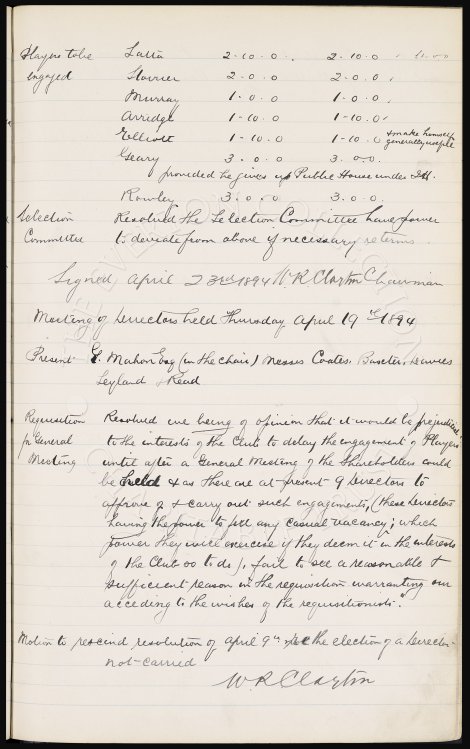 Players to be Latta 2-10-0 2-10-0
engaged Storrier 2-0-0 2-0-0
Murray 1-0-0 1-0-0
Arridge 1-10-0 1-10-0
Elliott 1-10-0 1-10-0 & make himself generally useful
Geary 3.0.0 3.0.0
provided he gives up Public House under
Rowley 3.0.0 3.0.0
Selection Resolved the Selection Committee have power
Committee to deviate from above if necessary re terms
Signed, April 23rd 1894 W R Clayton Chairman
Meeting of Directors held Thursday April 19th 1894
Present G. Mahon Esq (in the chair) Messrs Coates, Baxter, Davies
Leyland & Read
Requisition Resolved we being of opinion that it would be prejudicial
for General to the interests of the Club to delay the engagement of Players
Meeting until after a General Meeting of the Shareholders could
be held & as there are at present 9 Directors to
approve of & carry out such engagements, (these Directors
having the power to fill any casual vacancy, which
power they will exercise if they deem it in the interests
of the Club so to do), fail to see a reasonable &
sufficient reason in the requisition warranting our
acceding to the wishes of the requisitionists."
Motion to rescind resolution of April 9th re the election of a Director
not carried
W R Clayton